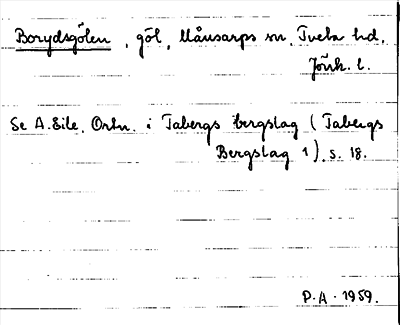 Borydsgölen, göl, Månsarps sn, Tveta hd,
Jönk. l.
Se A. Eile, Ortn. i Tabergs bergslag (Tabergs
Bergslag 1), s. 18.
P.A. 1959.